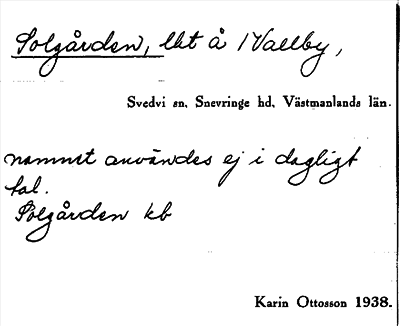 Solgården, lht å Vallby,
Svedvi sn, Snevringe hd, Västmanlands län.
namnet användes ej i dagligt
tal.
Solgården kb
Karin Ottosson 1938.